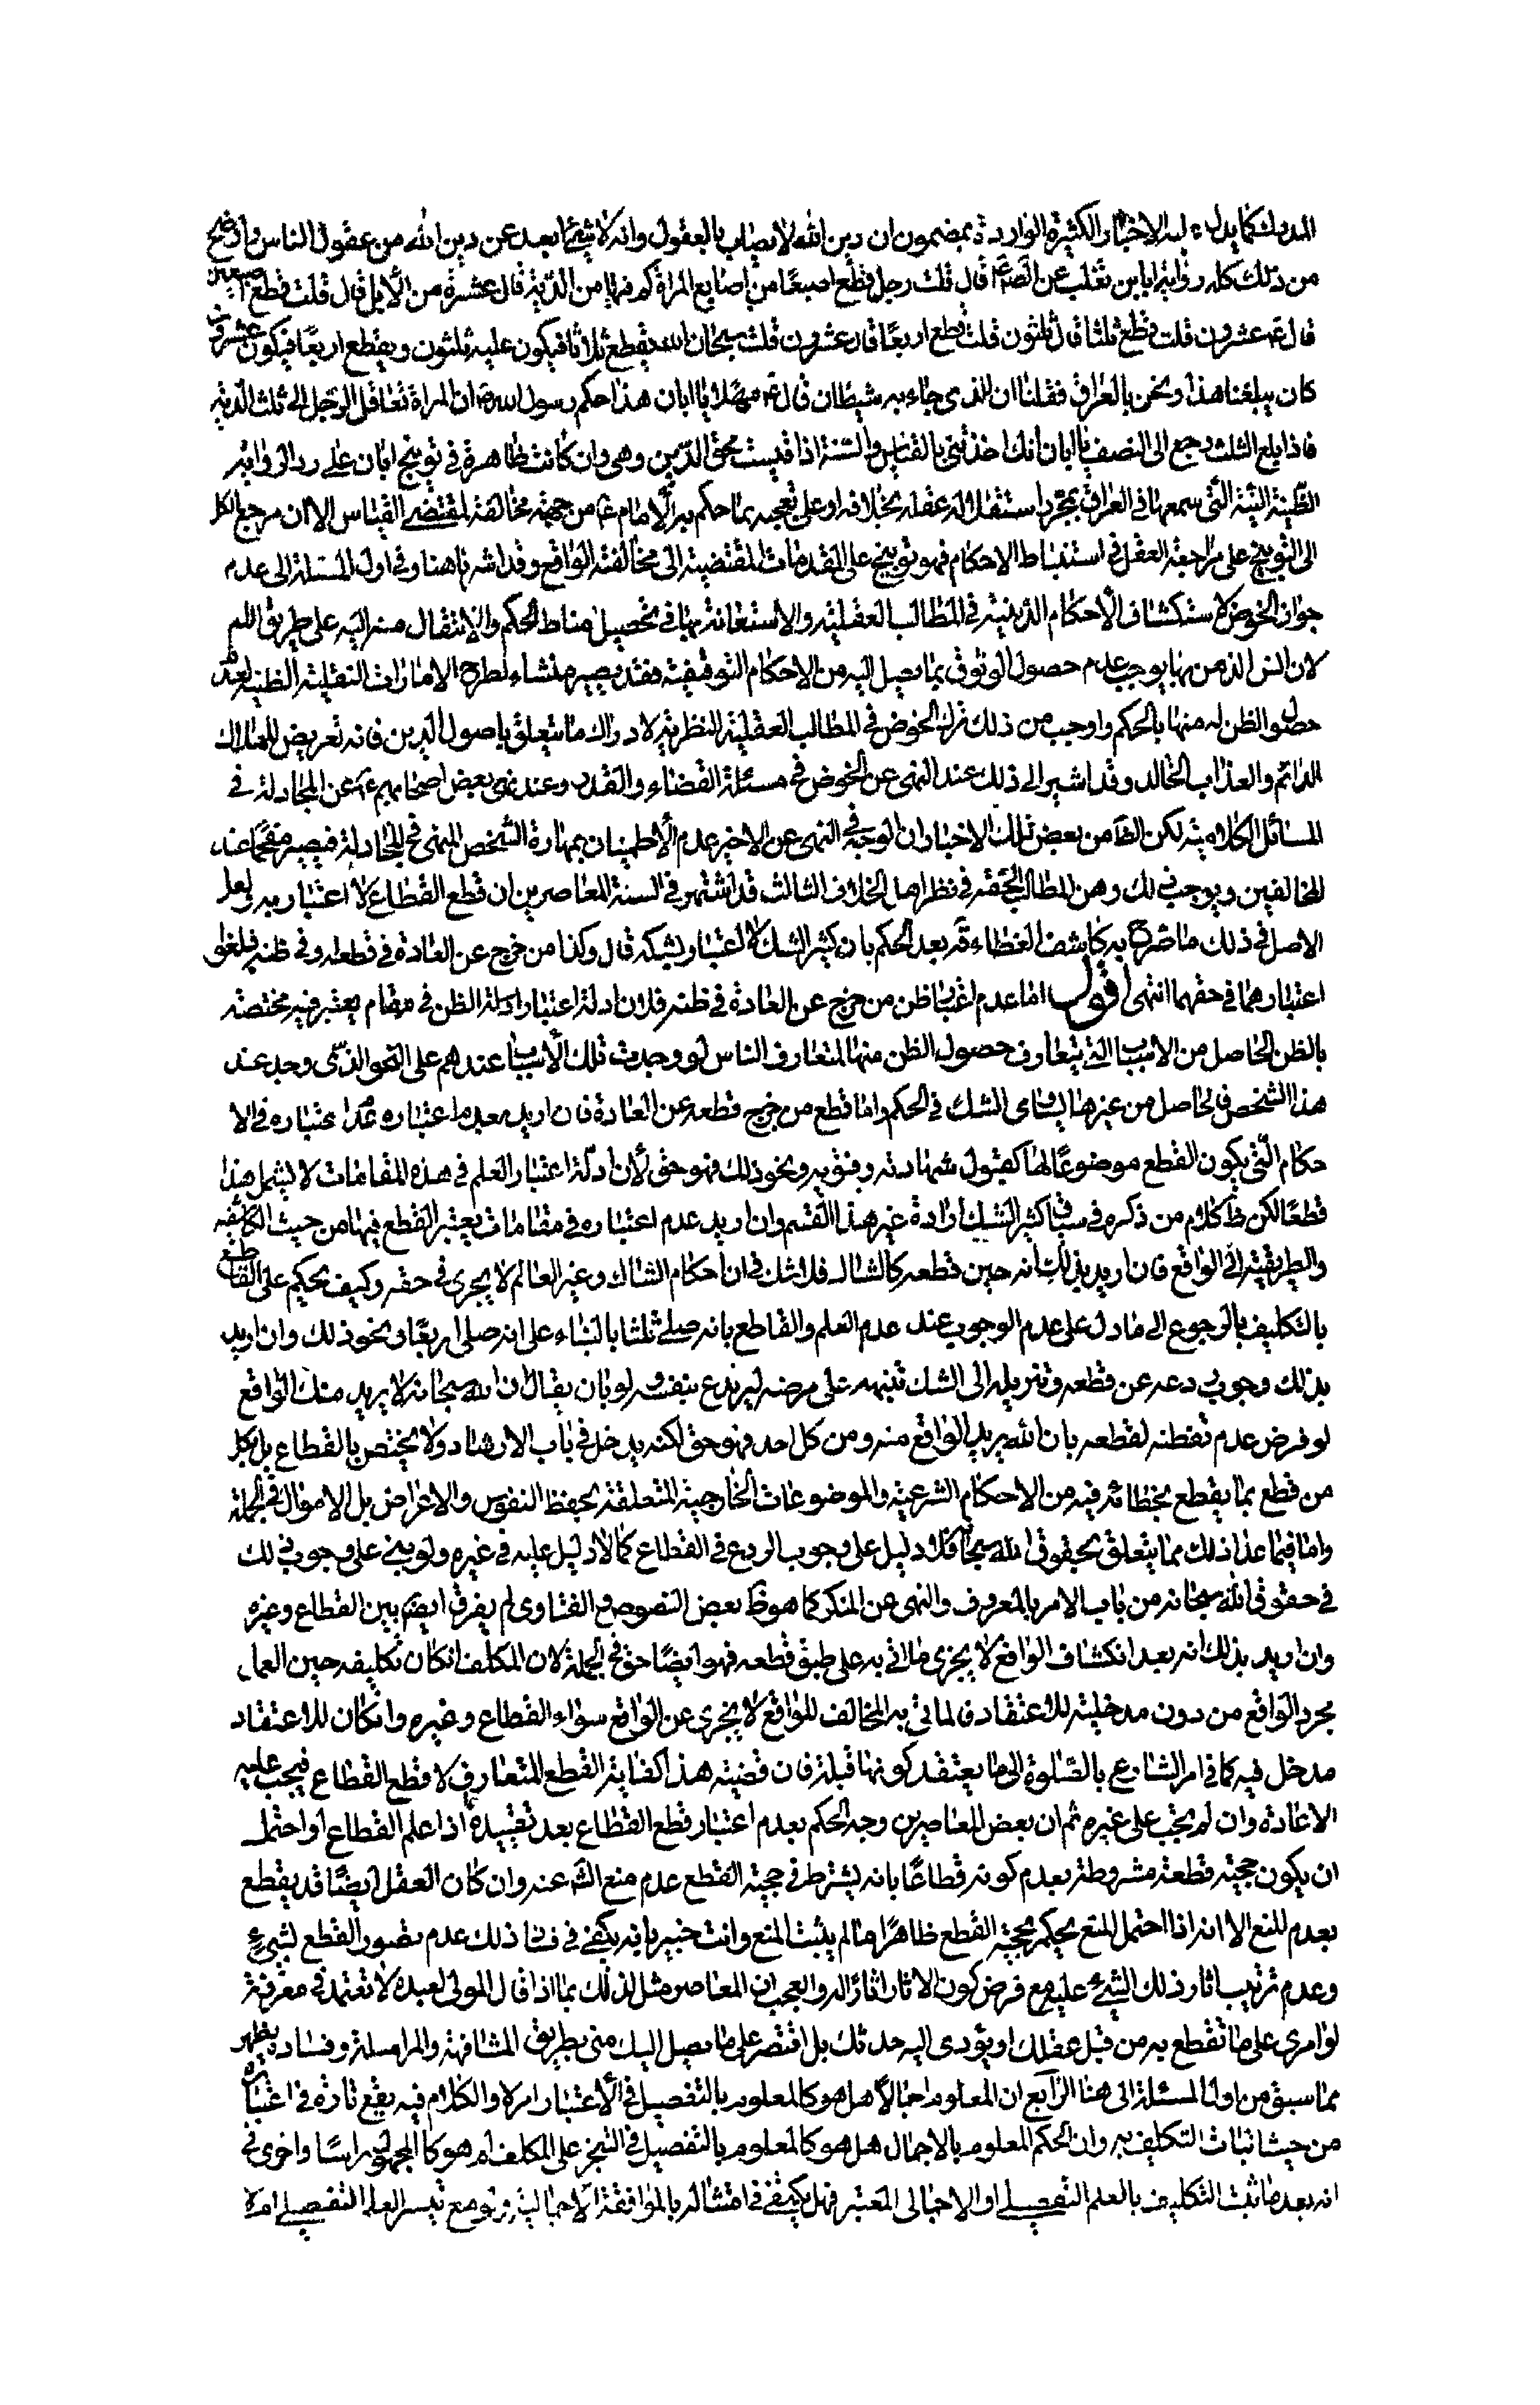 المدرك كما يدل عليه الاخبار الكثيرة الواردة بمضمون ان دين الله لا يصاب بالعقول وانه لا شئ ابعد عن دين الله من عقول الناس واوضح
من ذلك كله رواية ابان بن تغلب عن الصم ع قال قلت رجل قطع اصبعا من اصابع المراة كم فيها من الدية قال عشرة من الابل قال قلت قطع اصبعين
قال ع عشرون قلت قطع ثلثا قال ثلثون قلت قطع اربعا قال عشرون قلت سبحان الله يقطع ثلاثا فيكون عليه ثلثون ويقطع اربعا فيكون عشرون
كان يبلغنا هذا ونحن بالعراق فقلنا ان الذي جاء به شيطان قال ع مهلا يا ابان هذا حكم رسول الله ص ان المراة تعاقل الرجل الى ثلث الدية
فاذا بلغ الثلث رجع الى النصف يا ابان انك اخذتني بالقياس والسنة اذا قيست محق الدين وهي وان كانت ظاهرة في توبيخ ابان على رد الرواية
الظنية التي سمعها في العراق بمجرد استقلال عقله بخلافه او على تعجبه مما حكم به الامام ع من جهة مخالفته لمقتضى القياس الا ان مرجع الكل
الى التوبيخ على مراجعة العقل في استنباط الاحكام فهو توبيخ على المقدمات المفضية الى مخالفة الواقع وقد اشرنا هنا وفي اول المسئلة الى عدم
جواز الخوض لاستكشاف الاحكام الدينية في المطالب العقلية والاستعانة بها في تحصيل مناط الحكم والانتقال منه اليه على طريق اللم
لان انس الذهن بها يوجب عدم حصول الوثوق بما يصل اليه من الاحكام التوقيفية فقد يصير منشاء لطرح الامارات النقلية الظنية لعدم
حصول الظن له منها بالحكم واوجب من ذلك ترك الخوض في المطالب العقلية النظرية لادراك ما يتعلق باصول الدين فانه تعريض للهلاك
الدائم والعذاب الخالد وقد اشير الى ذلك عند النهى عن الخوض في مسئلة القضاء والقدر وعند نهى بعض اصحابهم ع عن المجادلة في
المسائل الكلامية لكن الظ من بعض تلك الاخبار ان الوجه في النهى عن الاخير عدم الاطمينان بمهارة الشخص المنهى في المجادلة فيصير مفحما عند
المخالفين ويوجب ذلك وهن المطالب الحقة في نظر اهل الخلاف الثالث قد اشتهر في السنة المعاصرين ان قطع القطاع لا اعتبار به ولعل
الاصل في ذلك ما صرح به كاشف الغطاء قده بعد الحكم بان كثير الشك لا اعتبار بشكه قال وكذا من خرج عن العادة في قطعه وفي ظنه فيلغوا
اعتبارهما في حقهما انتهى اقول اما عدم اعتبار ظن من خرج عن العادة في ظنه فلان ادلة اعتبار ادلة الظن في مقام يعتبر فيه مختصة
بالظن الحاصل من الاسباب التي يتعارف حصول الظن منها لمتعارف الناس لو وجدت تلك الاسباب عندهم على النحو الذي وجد عند
هذا الشخص فالحاصل من غيرها يساوى الشك في الحكم واما قطع من خرج قطعه عن العادة فان اريد بعدم اعتباره عدم اعتباره في الا
حكام التي يكون القطع موضوعا لها كقبول شهادته وفتويه ونحو ذلك فهو حق لان ادلة اعتبار العلم في هذه المقامات لا يشمل هذا
قطعا لكن ظ كلام من ذكره في سياق كثير الشك ارادة غير هذا القسم وان اريد عدم اعتباره في مقامات يعتبر القطع فيها من حيث الكاشفية
والطريقية الى الواقع فان اريد بذلك انه حين قطعه كالشاك فلا شك في ان احكام الشاك وغير العالم لا يجرى في حقه وكيف يحكم على القاطع
بالتكليف بالرجوع الى ما دل على عدم الوجوب عند عدم العلم والقاطع بانه صلى ثلثا بالبناء على انه صلى اربعا ونحو ذلك وان اريد
بذلك وجوب ردعه عن قطعه وتنزيله الى الشك تنبيهه على مرضه ليرتدع بنفسه ولو بان يقال ان الله سبحانه لا يريد منك الواقع
لو فرض عدم تفطنه لقطعه بان الله يريد الواقع منه ومن كل احد فهو حق لكنه يدخل في باب الارشاد ولا يختص بالقطاع بل بكل
من قطع بما يقطع بخطائه فيه من الاحكام الشرعية والموضوعات الخارجية المتعلقة بحفظ النفوس والاعراض بل الاموال في الجملة
واما فيما عدا ذلك مما يتعلق بحقوق الله سبحانه فلا دليل على وجوب الردع في القطاع كما لا دليل عليه في غيره ولو بنى على وجوب ذلك
في حقوق الله سبحانه من باب الامر بالمعروف والنهى عن المنكر كما هو ظ بعض النصوص والفتاوى لم يفرق ايضم بين القطاع وغيره
وان اريد بذلك انه بعد انكشاف الواقع لا يجزى ما اتى به على طبق قطعه فهو ايضا حق في الجملة لان المكلف ان كان تكليفه حين العمل
مجرد الواقع من دون مدخلية للاعتقاد فالماتي به المخالف للواقع لا يجزى عن الواقع سواء القطاع وغيره وان كان للاعتقاد
مدخل فيه كما في امر الشارع بالصلوة الى ما يعتقد كونها قبلة فان قضية هذا كفاية القطع المتعارف لا قطع القطاع فيجب عليه
الاعادة وان لم يجب على غيره ثم ان بعض المعاصرين وجه الحكم بعدم اعتبار قطع القطاع بعد تقييده بما اذا علم القطاع او احتمل
ان يكون حجية قطعه مشروطة بعدم كونه قطاعا بانه يشترط في حجية القطع عدم منع الش عنه وان كان العقل ايضا قد يقطع
بعدم المنع الا انه اذا احتمل المنع يحكم بحجية القطع ظاهرا ما لم يثبت المنع وانت خبير بانه يكفى في فساد ذلك عدم تصور القطع لشئ
وعدم ترتيب اثار ذلك الشئ عليه مع فرض كون الاثار اثارا له والعجب ان المعاصر مثل لذلك بما اذا قال المولى لعبده لا تعتمد في معرفة
اوامرى على ما تقطع به من قبل عقلك او يؤدى اليه حدثك بل اقتصر على ما يصل اليك منى بطريق المشافهة والمراسلة وفساده يظهر
مما سبق من اول المسئلة الى هنا الرابع ان المعلوم اجمالا هل هو كالمعلوم بالتفصيل في الاعتبار ام لا والكلام فيه يقع تارة في اعتباره
من حيث اثبات التكليف به وان الحكم المعلوم بالاجمال هل هو كالمعلوم بالتفصيل في التنجز على المكلف ام هو كالمجهول راسا واخرى في
انه بعد ما ثبت التكليف بالعلم التفصيلى او الاجمالى المعتبر فهل يكتفى في امتثاله بالموافقة الاجمالية ولو مع تيسر العلم التفصيلى ام لا